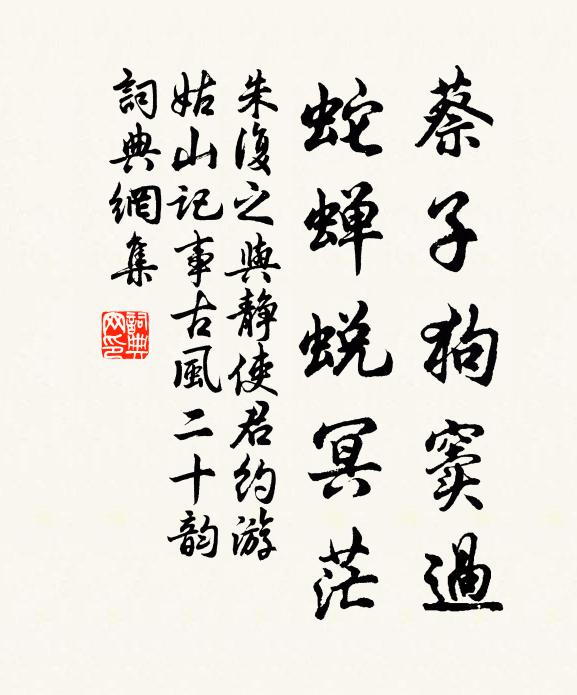 蔡子狗窦過
蛇蝉蜕冥茫
朱復之與静使君約游
姑山記事古風二十韵
詞典網集
詞典網印